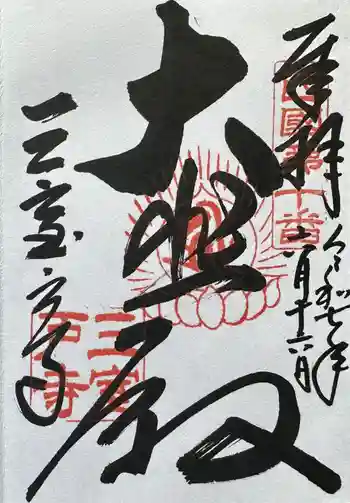 奉拝
西國第十番
令和七年
六月十六日
大悲殿
三室戸寺
三室
戸寺